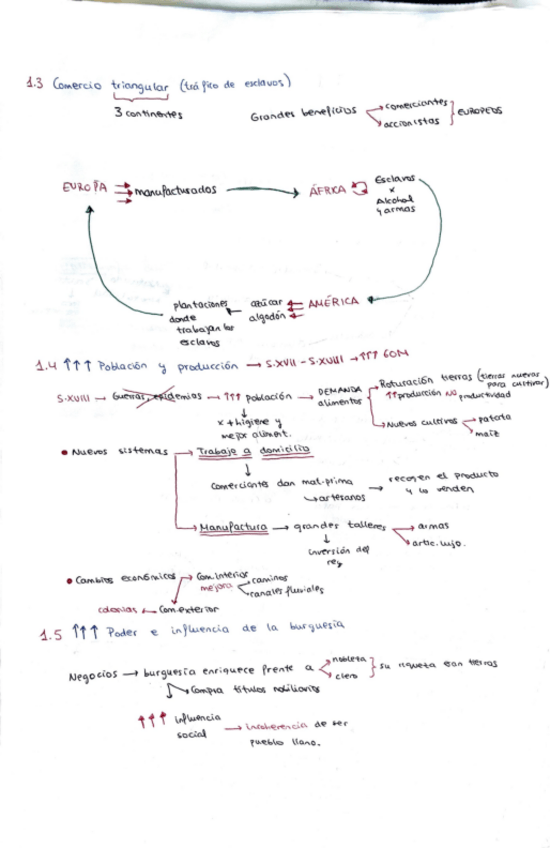 1.3 Comercio triangular (tráfico de esclavos)
3 continentes
Grandes beneficios → comerciantes
→ accionistas } EUROPEOS
EUROPA → manufacturados → ÁFRICA
Esclavos
x
Alcohol
y armas
AMÉRICA
azúcar
algodón
plantaciones
donde
trabajan los
esclavos
1.4 ↑↑↑ Población y producción → S.XVII - S.XVIII → ↑↑↑ 60M
S.XVIII → Guerras, epidemias → ↑↑↑ población → DEMANDA
alimentos
→ Roturación tierras (tierras nuevas
para cultivar)
↑↑ producción NO productividad
→ Nuevos cultivos → patata
→ maíz
↓
x + higiene y
mejor aliment.
• Nuevos sistemas → Trabajo a domicilio
↓
Comerciantes dan mat.prima → recogen el producto
y lo venden
↳ artesanos
→ Manufactura → grandes talleres → armas
→ artíc. lujo.
↓
inversión del
rey
• Cambios económicos → Com.interior
mejora → caminos
→ canales fluviales
colonias ← Com.exterior
1.5 ↑↑↑ Poder e influencia de la burguesía
Negocios → burguesía enriquece frente a → nobleza
→ clero } su riqueza eran tierras
↳ Compra títulos nobiliarios
↑↑↑ influencia
social → incoherencia de ser
pueblo llano.